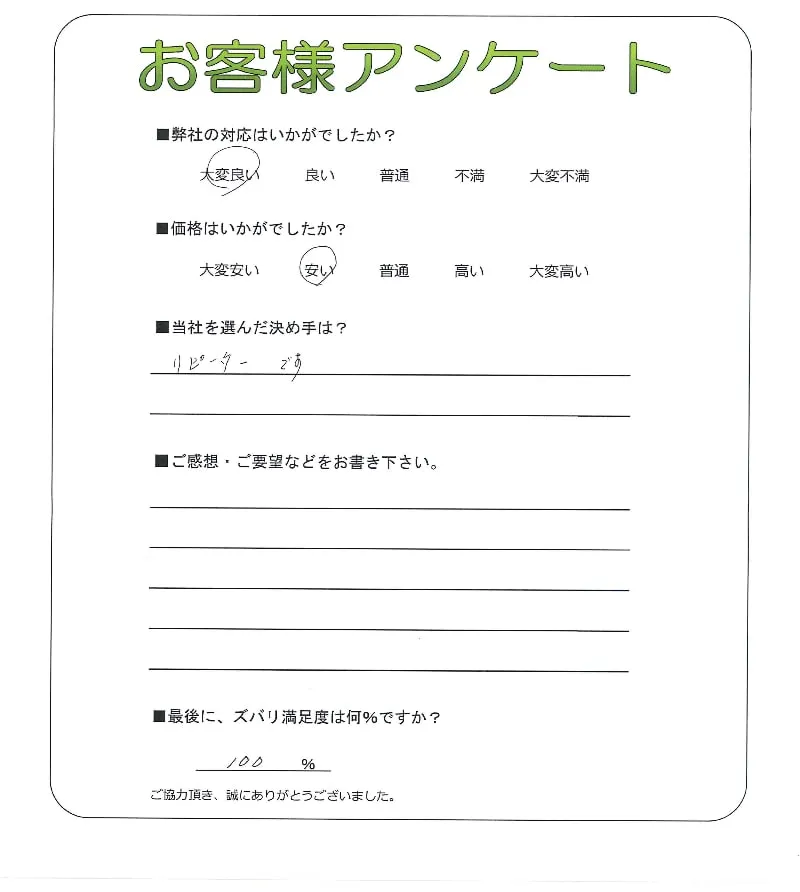 お客様アンケート
■弊社の対応はいかがでしたか？
大変良い 良い 普通 不満 大変不満
■価格はいかがでしたか？
大変安い 安い 普通 高い 大変高い
■当社を選んだ決め手は？
リピーター です
■ご感想・ご要望などをお書き下さい。
■最後に、ズバリ満足度は何%ですか？
100 %
ご協力頂き、誠にありがとうございました。